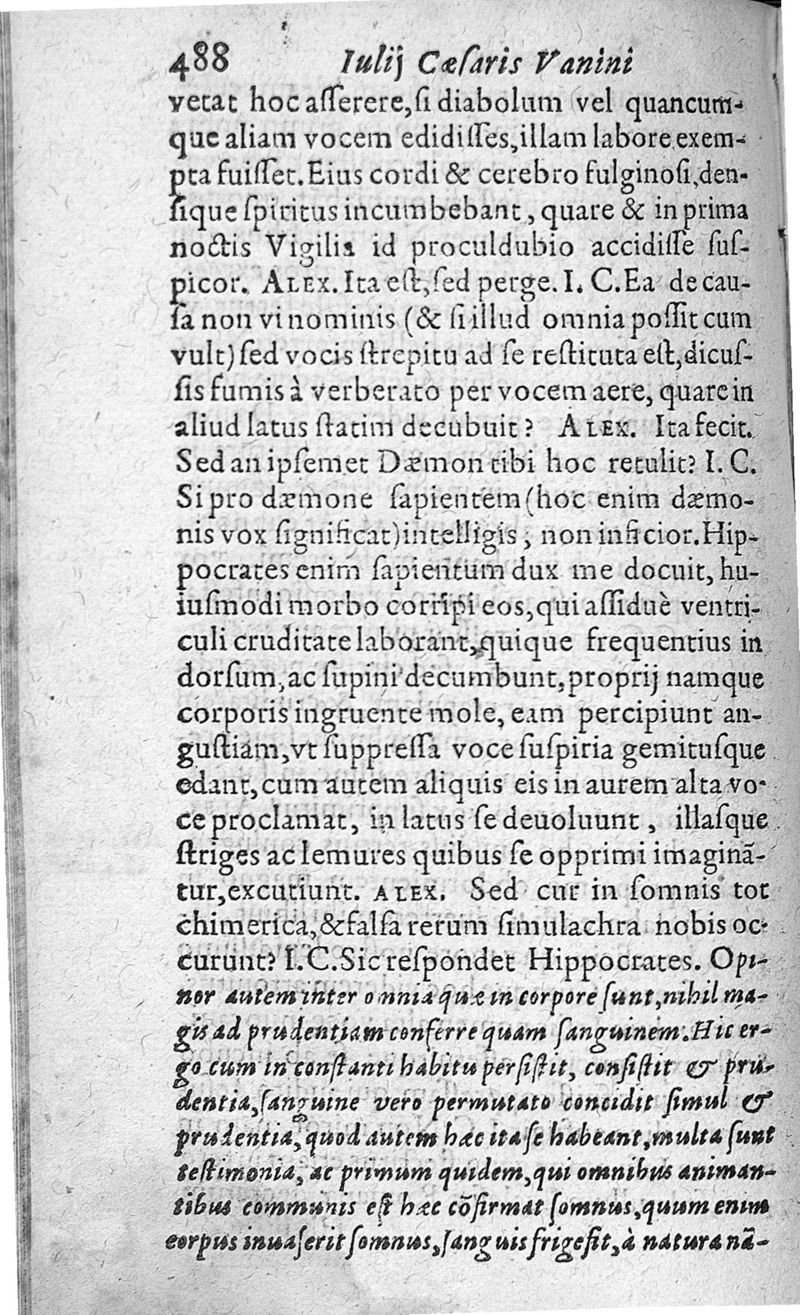 488 Iulij Cæſaris Vanini
vetat hoc aſſerere, ſi diabolum vel quancum-
que aliam vocem edidiſſes, illam labore exem-
pta fuiſſet. Eius cordi & cerebro fulginoſi, den-
ſique ſpiritus incumbebant, quare & in prima
noctis Vigilia id proculdubio accidiſſe ſuſ-
picor. ALEX. Ita eſt, ſed perge. I. C. Ea de cau-
ſa non vi nominis (& ſi illud omnia poſſit cum
vult) ſed vocis ſtrepitu ad ſe reſtituta eſt, dicuſ-
ſis fumis à verberato per vocem aere, quare in
aliud latus ſtatim decubuit? ALEX. Ita fecit.
Sed an ipſemet Dæmon tibi hoc retulit? I. C.
Si pro dæmone ſapientem (hoc enim dæmo-
nis vox ſignificat) intelligis, non inficior. Hip-
pocrates enim ſapientum dux me docuit, hu-
iuſmodi morbo corripi eos, qui aſſiduè ventri-
culi cruditate laborant, quique frequentius in
dorſum, ac ſupini decumbunt, proprij namque
corporis ingruente mole, eam percipiunt an-
guſtiam, vt ſuppreſſa voce ſuſpiria gemituſque
edant, cum autem aliquis eis in aurem alta vo-
ce proclamat, in latus ſe deuoluunt, illaſque
ſtriges ac lemures quibus ſe opprimi imaginã-
tur, excutiunt. ALEX. Sed cur in ſomnis tot
chimerica, & falſa rerum ſimulachra nobis oc-
curunt? I. C. Sic reſpondet Hippocrates. Opi-
nor autem inter omnia quæ in corpore ſunt, nihil ma-
gis ad prudentiam conferre quam ſanguinem. Hic er-
go cum in conſtanti habitu perſiſtit, conſiſtit & pru-
dentia, ſanguine vero permutato concidit ſimul &
prudentia, quod autem hæc ita ſe habeant, multa ſunt
teſtimonia, ac primum quidem, qui omnibus animan-
tibus communis eſt hæc cõfirmat ſomnus, quum enim
corpus inuaſerit ſomnus, ſanguis frigeſit, à natura nã-